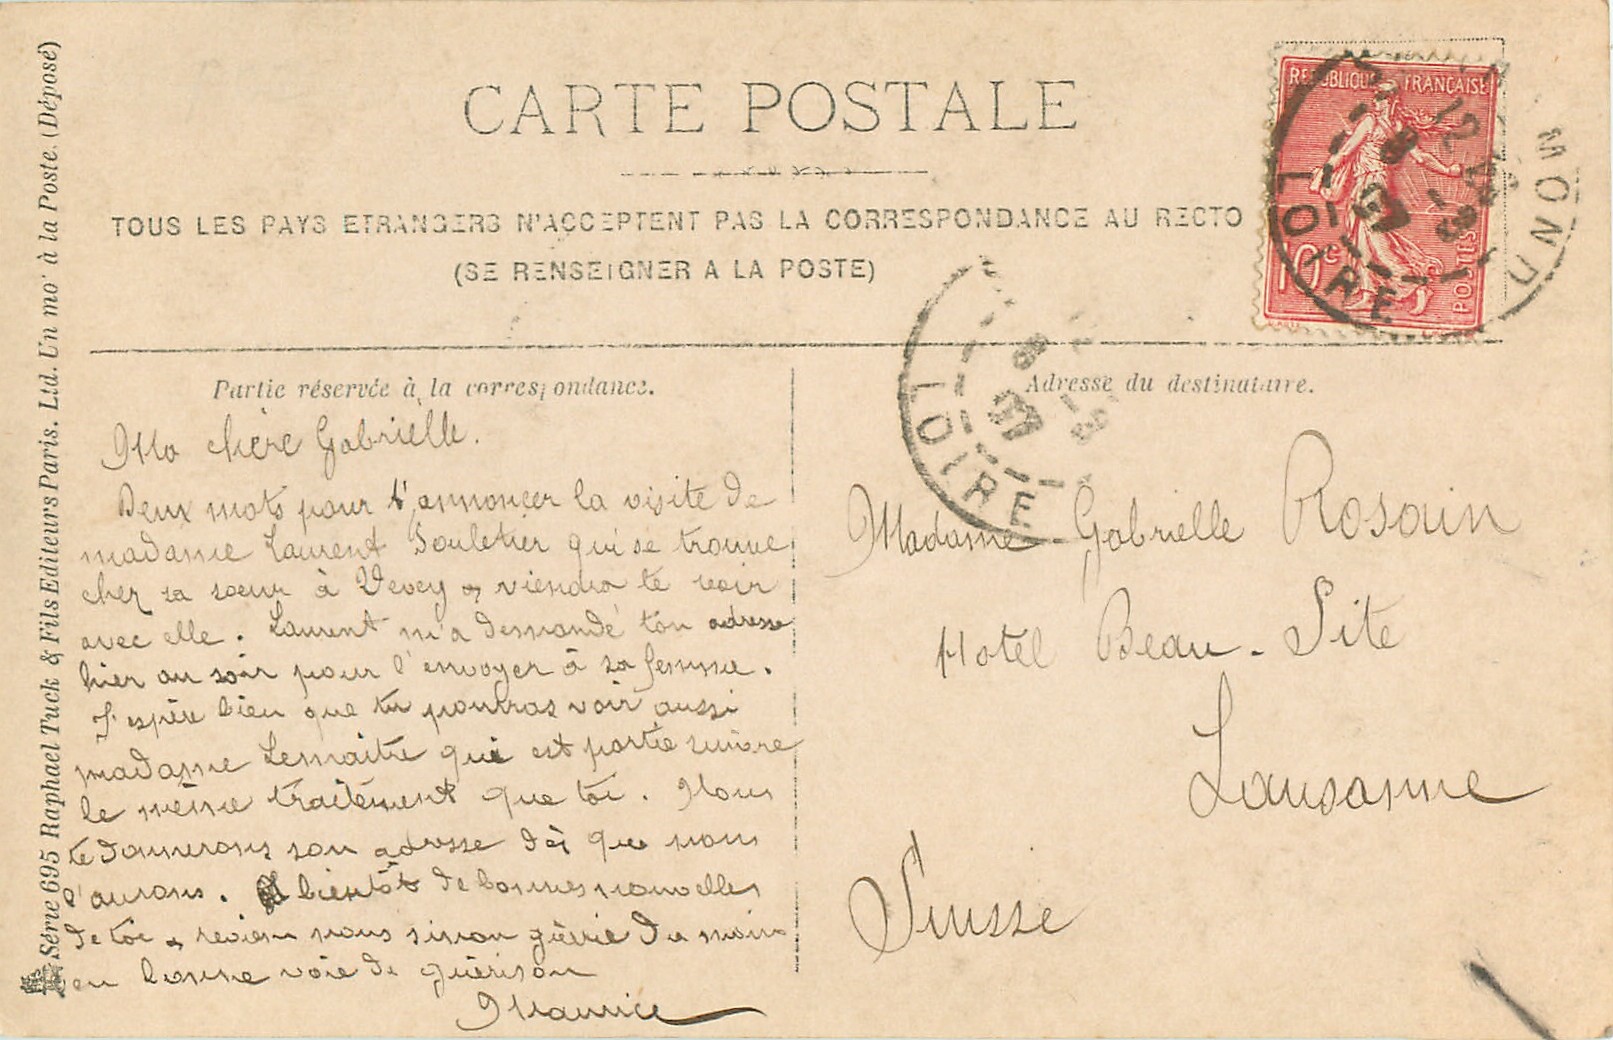 CARTE POSTALE
TOUS LES PAYS ETRANGERS N'ACCEPTENT PAS LA CORRESPONDANCE AU RECTO
(SE RENSEIGNER A LA POSTE)
REPUBLIQUE FRANÇAISE
10c
POSTES
LOIRE
LOIRE
Série 695 Raphael Tuck & Fils Editeurs Paris. Ltd. Un mot à la Poste. (Déposé)
Partie réservée à la correspondance.
Ma chère Gabrielle.
Deux mots pour t'annoncer la visite de
madame Laurent Souletier qui se trouve
chez sa soeur à Vevey & viendra te voir
avec elle. Laurent m'a demandé ton adresse
hier au soir pour l'envoyer à sa femme.
J'espère bien que tu pourras voir aussi
madame Lemaitre qui est partie suivre
le même traitement que toi. Nous
te donnerons son adresse dès que nous
l'aurons. A bientôt de bonnes nouvelles
de toi & reviens nous sinon guérie du moins
en bonne voie de guérison
Maurice
Adresse du destinataire.
Madame Gabrielle Rosain
Hotel Beau-Site
Lausanne
Suisse